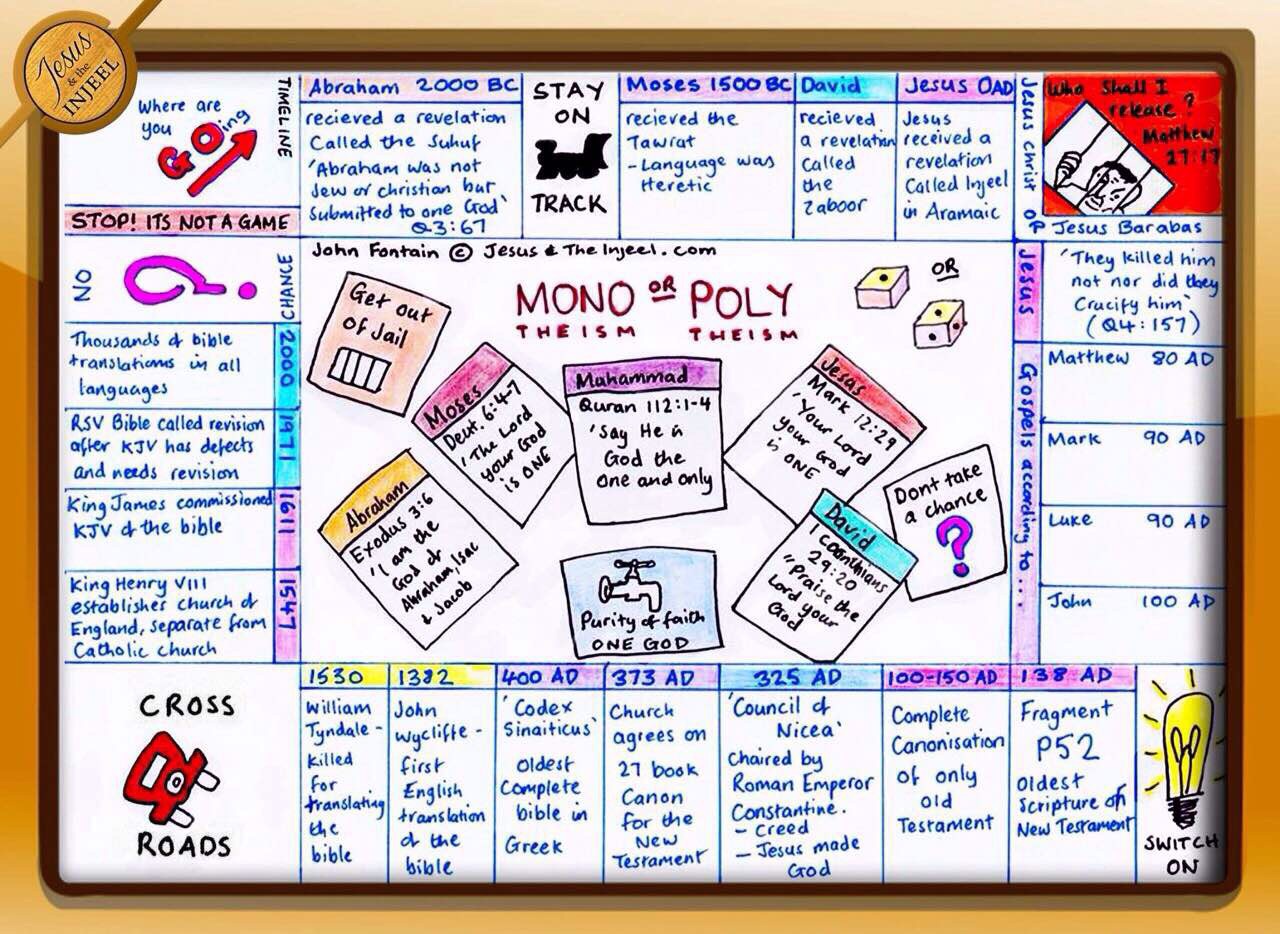 Jesus
& the
INJEEL
Where are
you GOing
TIMELINE
Abraham 2000 BC
recieved a revelation
Called the Suhuf
'Abraham was not
Jew or christian but
submitted to one God'
Q3:67
STAY
ON
TRACK
Moses 1500 BC
recieved the
Tawrat
- Language was
Heretic
David
recieved
a revelation
Called
the
Zaboor
Jesus 0AD
Jesus
received a
revelation
Called Injeel
in Aramaic
Jesus christ
OR
Who shall I
release?
Matthew
27:17
Jesus Barabas
Jesus
'They killed him
not nor did they
Crucify him'
(Q4:157)
Gospels according to....
Matthew 80 AD
Mark 90 AD
Luke 90 AD
John 100 AD
SWITCH
ON
138 AD
Fragment
P52
oldest
Scripture of
New Testament
100-150 AD
Complete
Canonisation
of only
old
Testament
325 AD
'Council of
Nicea'
Chaired by
Roman Emperor
Constantine.
- Creed
- Jesus made
God
373 AD
Church
agrees on
27 book
Canon
for the
New
Testament
400 AD
'Codex
Sinaiticus'
oldest
Complete
bible in
Greek
1382
John
Wycliffe -
first
English
translation
of the
bible
1530
William
Tyndale -
killed
for
translating
the
bible
CROSS
ROADS
1547
King Henry VIII
establishes church of
England, separate from
Catholic church
1611
King James commissioned
KJV of the bible
1971
RSV Bible called revision
after KJV has defects
and needs revision
2000
Thousands of bible
translations in all
languages
NO
?
CHANCE
STOP! ITS NOT A GAME
John Fontain © Jesus & The Injeel.com
MONO OR POLY
THEISM THEISM
OR
Get out
of Jail
Moses
Deut. 6:4-7
'The Lord
your God
is ONE
Muhammad
Quran 112:1-4
'Say He is
God the
one and only
Jesus
Mark 12:29
'Your Lord
your God
is ONE
Abraham
Exodus 3:6
'I am the
God of
Abraham, Isac
& Jacob
David
1 Corinthians
29:20
"Praise the
Lord your
God
Dont take
a chance
?
Purity of faith
ONE GOD